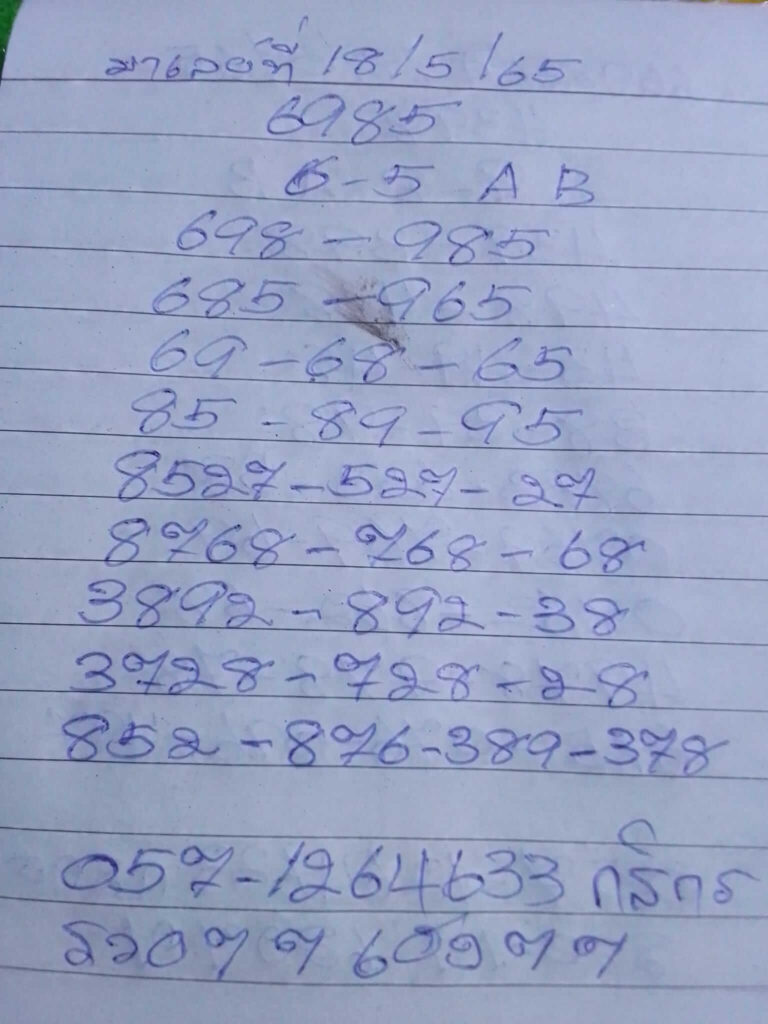 มาเลย์ที่ 18/5/65
6985
6-5 A B
698 - 985
685 - 965
69 - 68 - 65
85 - 89 - 95
8527 - 527 - 27
8768 - 768 - 68
3892 - 892 - 38
3728 - 728 - 28
852 - 876 - 389 - 378
057-1264633 กสิกร